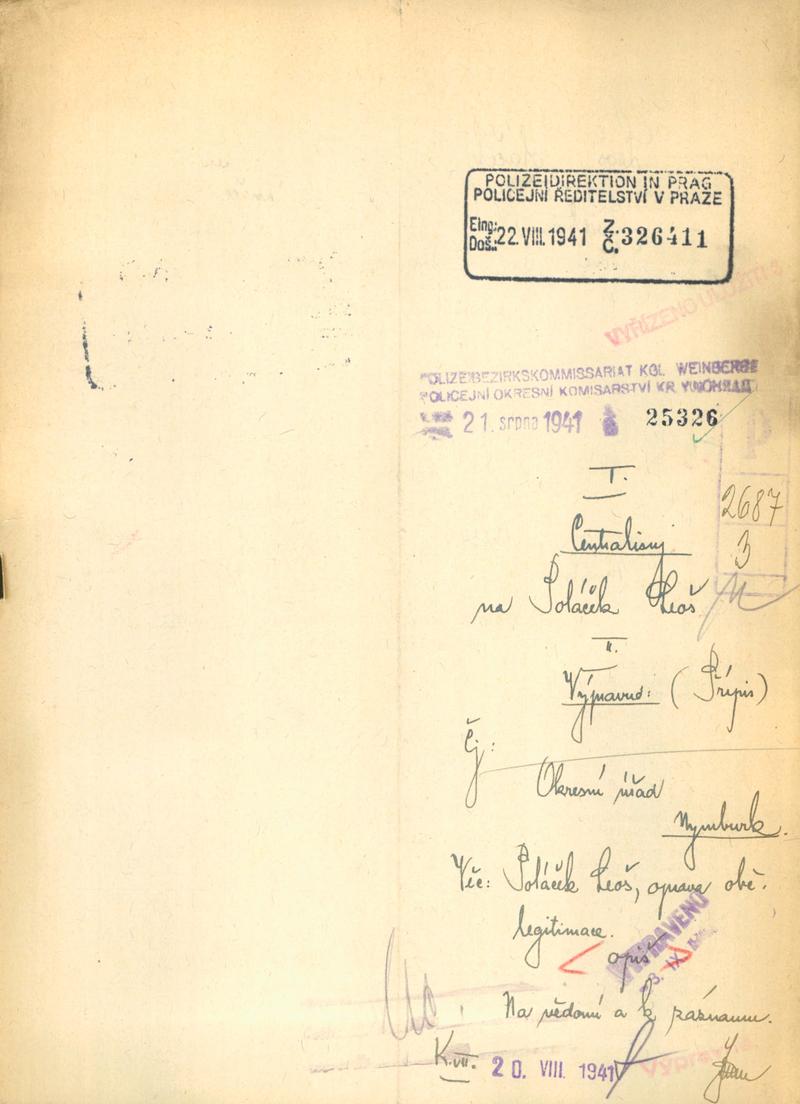 POLIZEIDIREKTION IN PRAG
POLICEJNÍ ŘEDITELSTVÍ V PRAZE
Eing.:
Doš.: 22. VIII. 1941 Z. Č. 326411
VYŘÍZENO ULOŽITI
POLIZEIBEZIRKSKOMMISSARIAT KGL. WEINBERGE
POLICEJNÍ OKRESNÍ KOMISARSTVÍ KR. VINOHRADY
21. srpna 1941 25326
P
I.
2687
3
Centralisuj
na Poláček Leoš
II.
Výpravud: (Přípis)
Čj:
Okresní úřad
Nymburk.
Věc: Poláček Leoš, oprava obč.
legitimace.
VYPRAVENO
< opiš >
IX
Na vědomí a k záznamu.
K.VII. 20. VIII. 1941